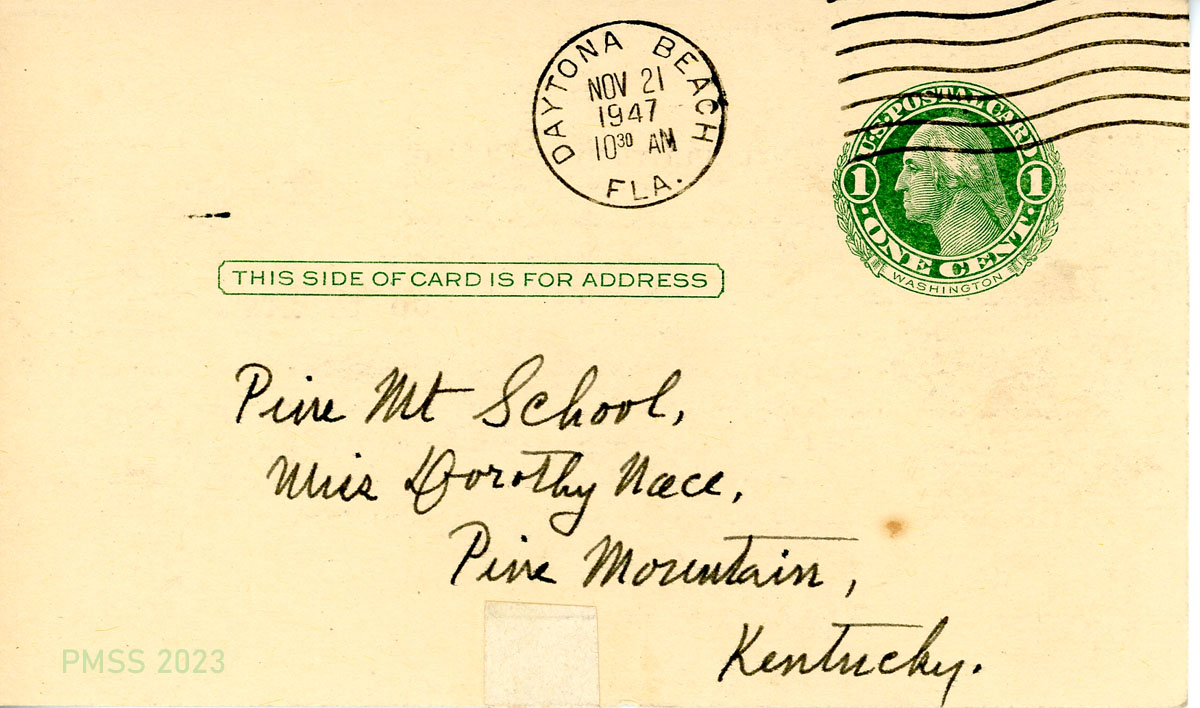 DAYTONA BEACH
NOV 21
1947
10³⁰ AM
FLA.
U.S. POSTAL CARD
1 1
ONE CENT
WASHINGTON
THIS SIDE OF CARD IS FOR ADDRESS
Pine Mt School,
Miss Dorothy Nace,
Pine Mountain,
Kentucky.
PMSS 2023